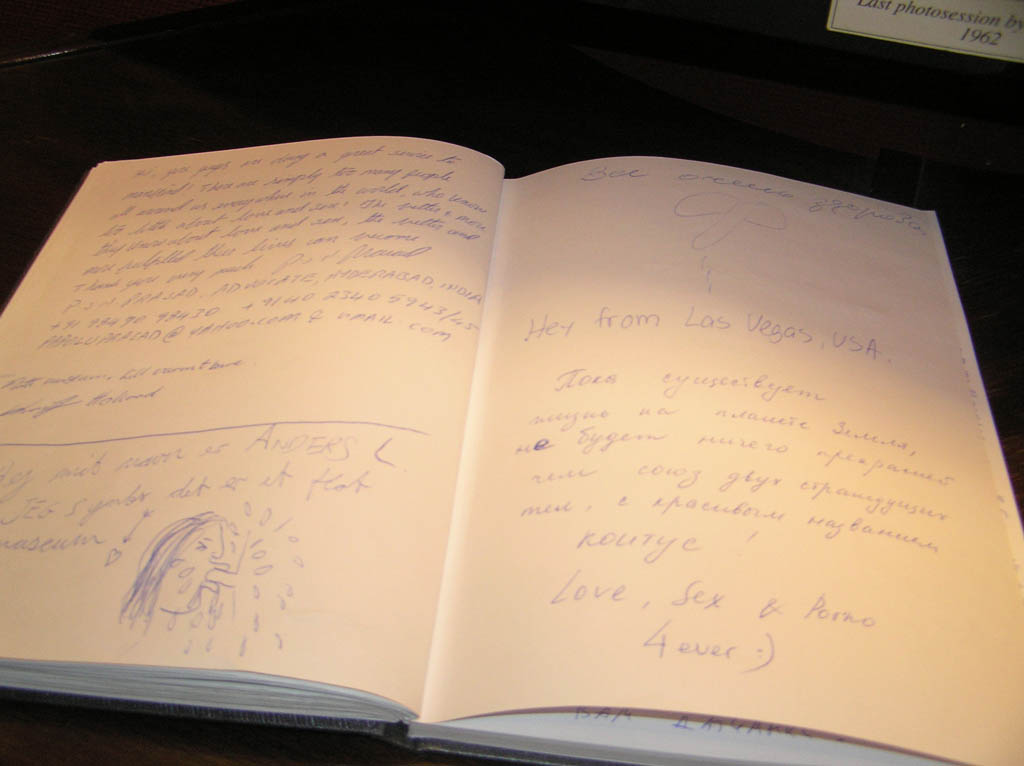 Last photosession by
1962
Hi, you guys are doing a great service to
mankind. There are simply too many people
all around us everywhere in the world who know
too little about love and sex. The better & more
they know about love and sex, the better and
more fulfilled their lives can become
Thank you very much
P.S.N. PRASAD, ADVOCATE, HYDERABAD, INDIA
+91 98490 98430 +91 40 2340 5943/45
@ YAHOO.COM & GMAIL COM
museum,
Holland
Hej mit navn er ANDERS
JEG synes det er et flot
museum
Все очень здорово.
Hey from Las Vegas, USA.
Пока существует
жизнь на планете Земля,
не будет ничего прекрасней
чем союз двух страждущих
тел, с красивым названием
коитус!
Love, Sex & Porno
4 ever :)
ВАМ